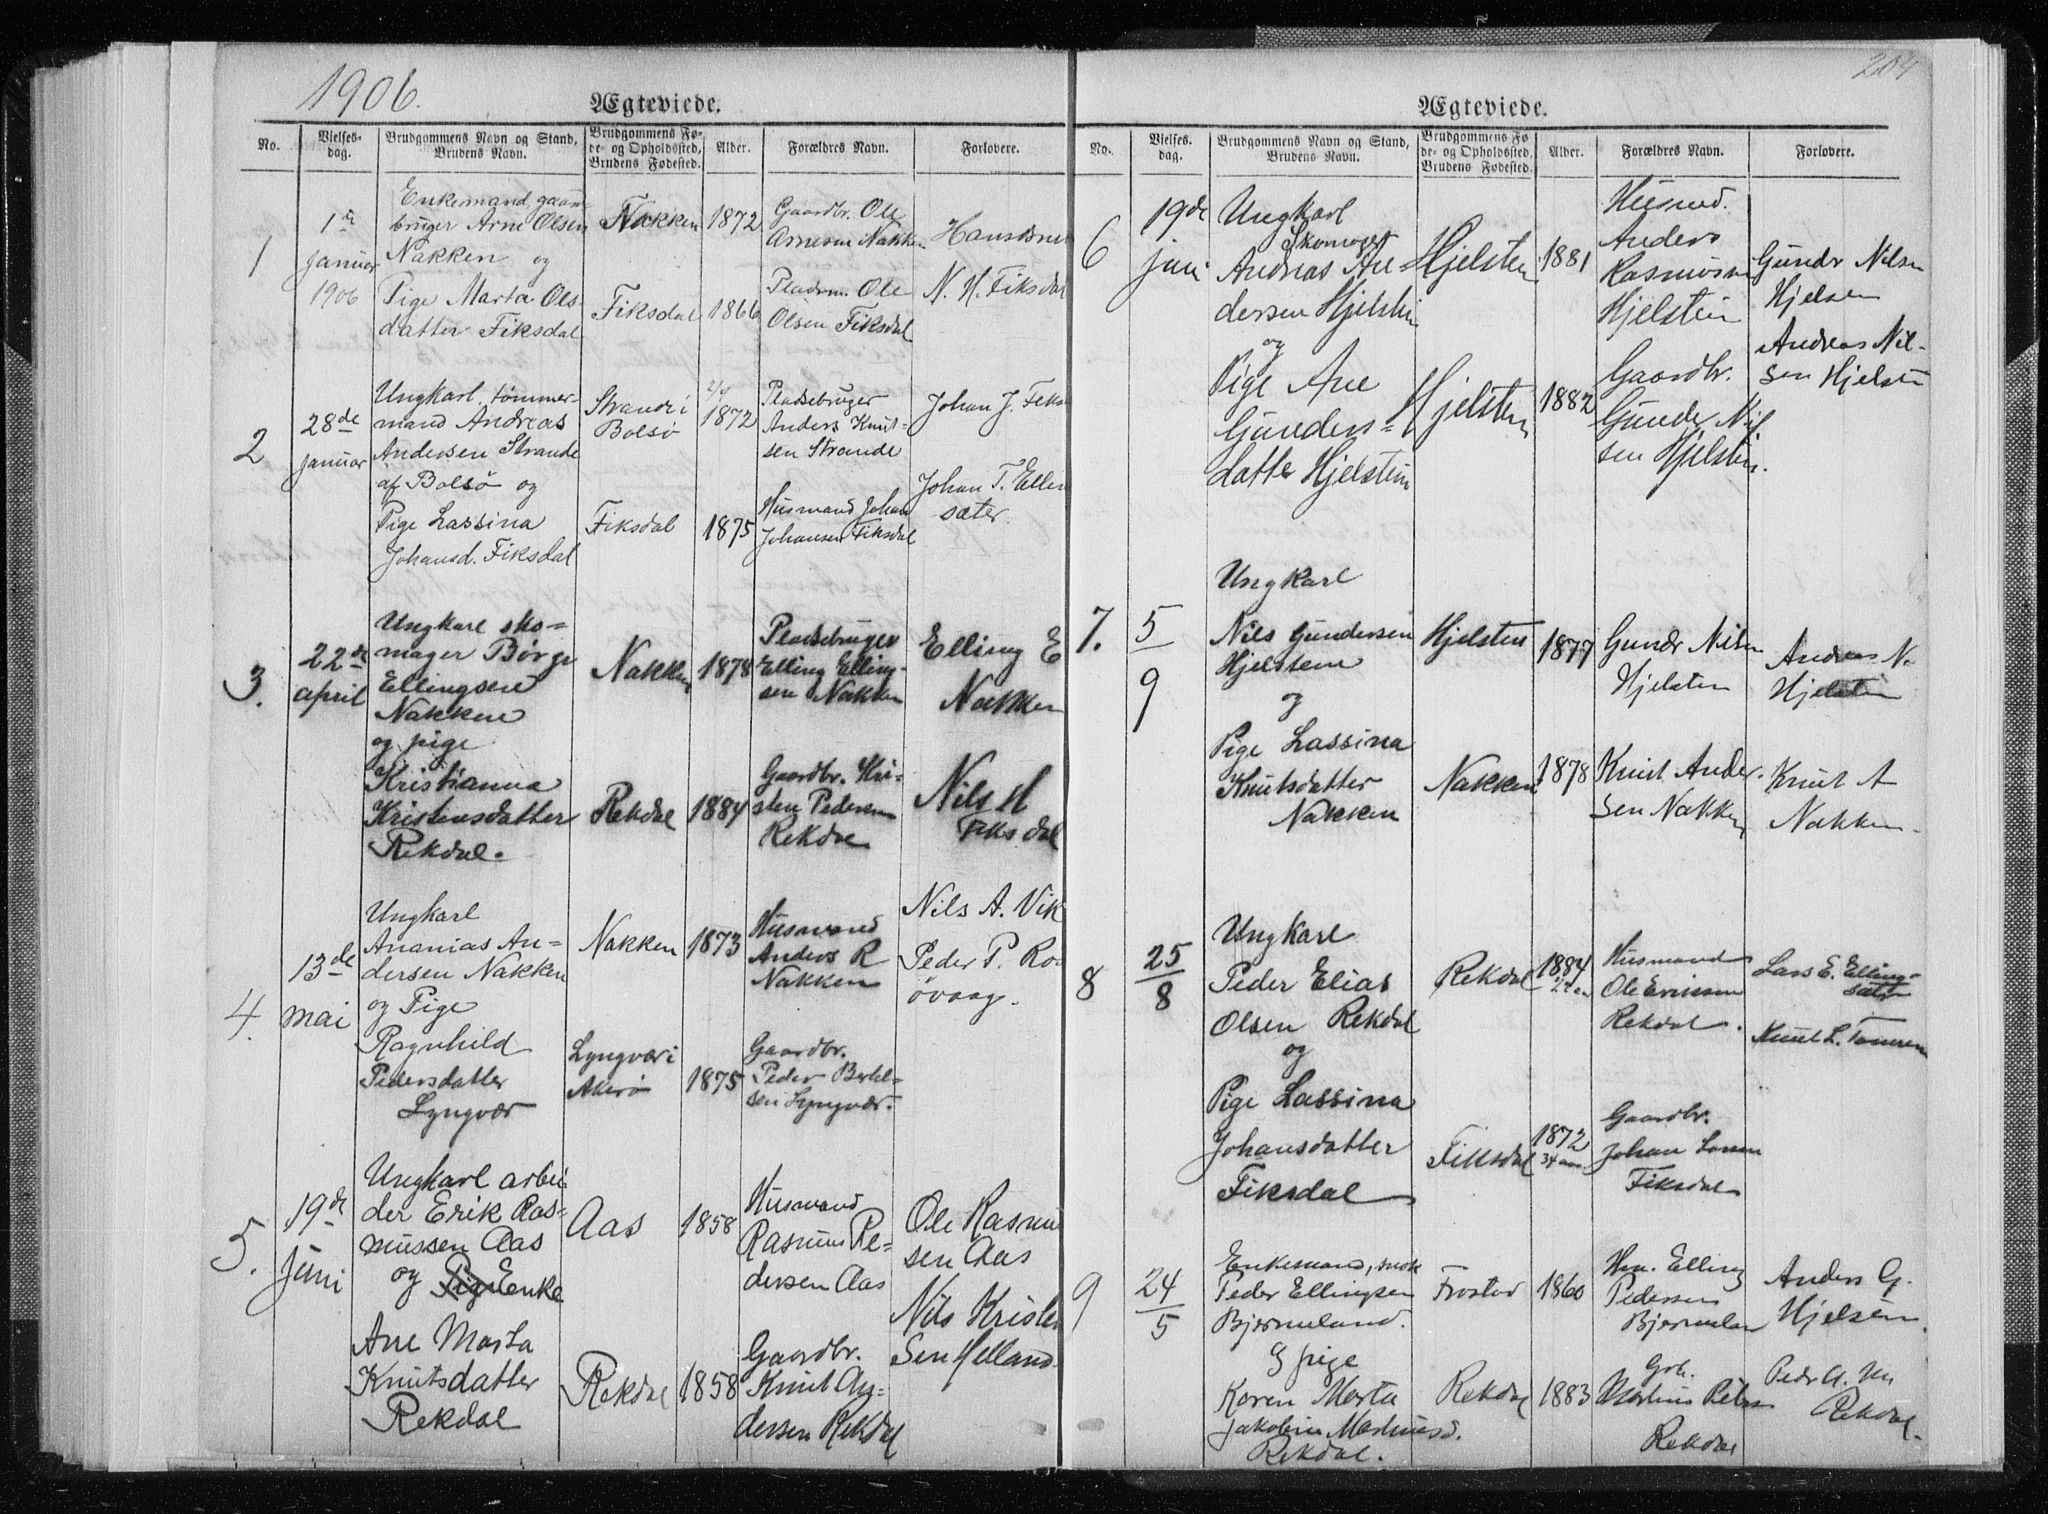 1906.
Ægteviede.
No.
Vielses-
dag.
Brudgommens Navn og Stand,
Brudens Navn.
Brudgommens Fø-
de- og Opholdssted,
Brudens Fødested.
Alder.
Forældres Navn.
Forlovere.
1
1ste
Januar
1906
Enkemand, gaard-
bruger Arne Olsen
Nakken og
Pige Marta Ols
datter Fiksdal
Nakken
Fiksdal
1872
1866
Gaardbr. Ole
Arnesen Nakken
Pladsm. Ole
Olsen Fiksdal
N. H. Fiksdal
2
28de
januar
Ungkarl, tømmer-
mand Andreas
Andersen Strande
af Bolsø og
Pige Lassina
Johansd. Fiksdal
Strande i
Bolsø
Fiksdal
1872
1875
Pladsebruger
Anders Knut-
sen Strande
Husmand Johan
Johansen Fiksdal
Johan J. Fiks
Johan T. Ellen
sæter.
3.
22de
april
Ungkarl sko-
mager Børge
Ellingsen
Nakken
og pige
Kristianna
Kristensdatter
Rekdal.
Nakken
Rekdal
1878
1884
Pladsebruger
Elling Elling-
sen Nakken
Gaardbr. Kri-
sten Pedersen
Rekdal
Elling E
Nakken
Nils H
Fiksdal
4.
13de
mai
Ungkarl
Ananias An-
dersen Nakken
og Pige
Ragnhild
Pedersdatter
Lyngvær
Nakken
Lyngvær i
Akerø
1873
1875
Husmand
Anders R
Nakken
Gaardbr.
Peder Bertel-
sen Lyngvær.
Nils A. Vik
Peder P. Ro
øvaag.
5.
19de
juni
Ungkarl arbei
der Erik Ras-
mussen Aas
og Pige Enke
Ane Marta
Knutsdatter
Rekdal
Aas
Rekdal
1858
1858
Husmand
Rasmus Pe-
dersen Aas
Gaardbr.
Knut An-
dersen Rekdal
Ole Rasmu
sen Aas
Nils Kristen
sen Helland.
204
Ægteviede.
No.
Vielses-
dag.
Brudgommens Navn og Stand,
Brudens Navn.
Brudgommens Fø-
de- og Opholdssted,
Brudens Fødested.
Alder.
Forældres Navn.
Forlovere.
6
19de
juni
Ungkarl
Skomager
Andreas An-
dersen Hjelsten
og
Pige Ane
Gunders-
datter Hjelstein
Hjelsten
Hjelsten
1881
1882
Husmd.
Anders
Rasmussen
Hjelstein
Gaardbr.
Gunder Nil
sen Hjelstein.
Gunder Nilsen
Hjelsen
Andreas Nil-
sen Hjelsten
7.
5
9
Ungkarl
Nils Gundersen
Hjelstene
og
Pige Lassina
Knutsdatter
Nakken
Hjelsten
Nakken
1877
1878
Gunder Nilsen
Hjelsten
Knut Ander-
sen Nakken
Andreas N.
Hjelsten
Knut A
Nakken.
8
25
8
Ungkarl
Peder Elias
Olsen Rekdal
og
Pige Lassina
Johansdatter
Fiksdal
Rekdal
Fiksdal
1884
1872
34 aar
Husmand
Ole Eriksen
Rekdal.
Gaardbr.
Johan Larsen
Fiksdal
Lars E. Elling-
sæter
Knut L. Tomren
9
24
5
Enkemand,
Peder Ellingsen
Bjermeland.
og pige
Karen Marta
Jakobine Martinusd.
Rekdal.
Frostad
Rekdal
1860
1883
Hm. Elling
Pedersen
Bjermelan
Grb.
Martinus Peders
Rekdal
Anders G.
Hjelsen.
Peder A.
Rekdal.